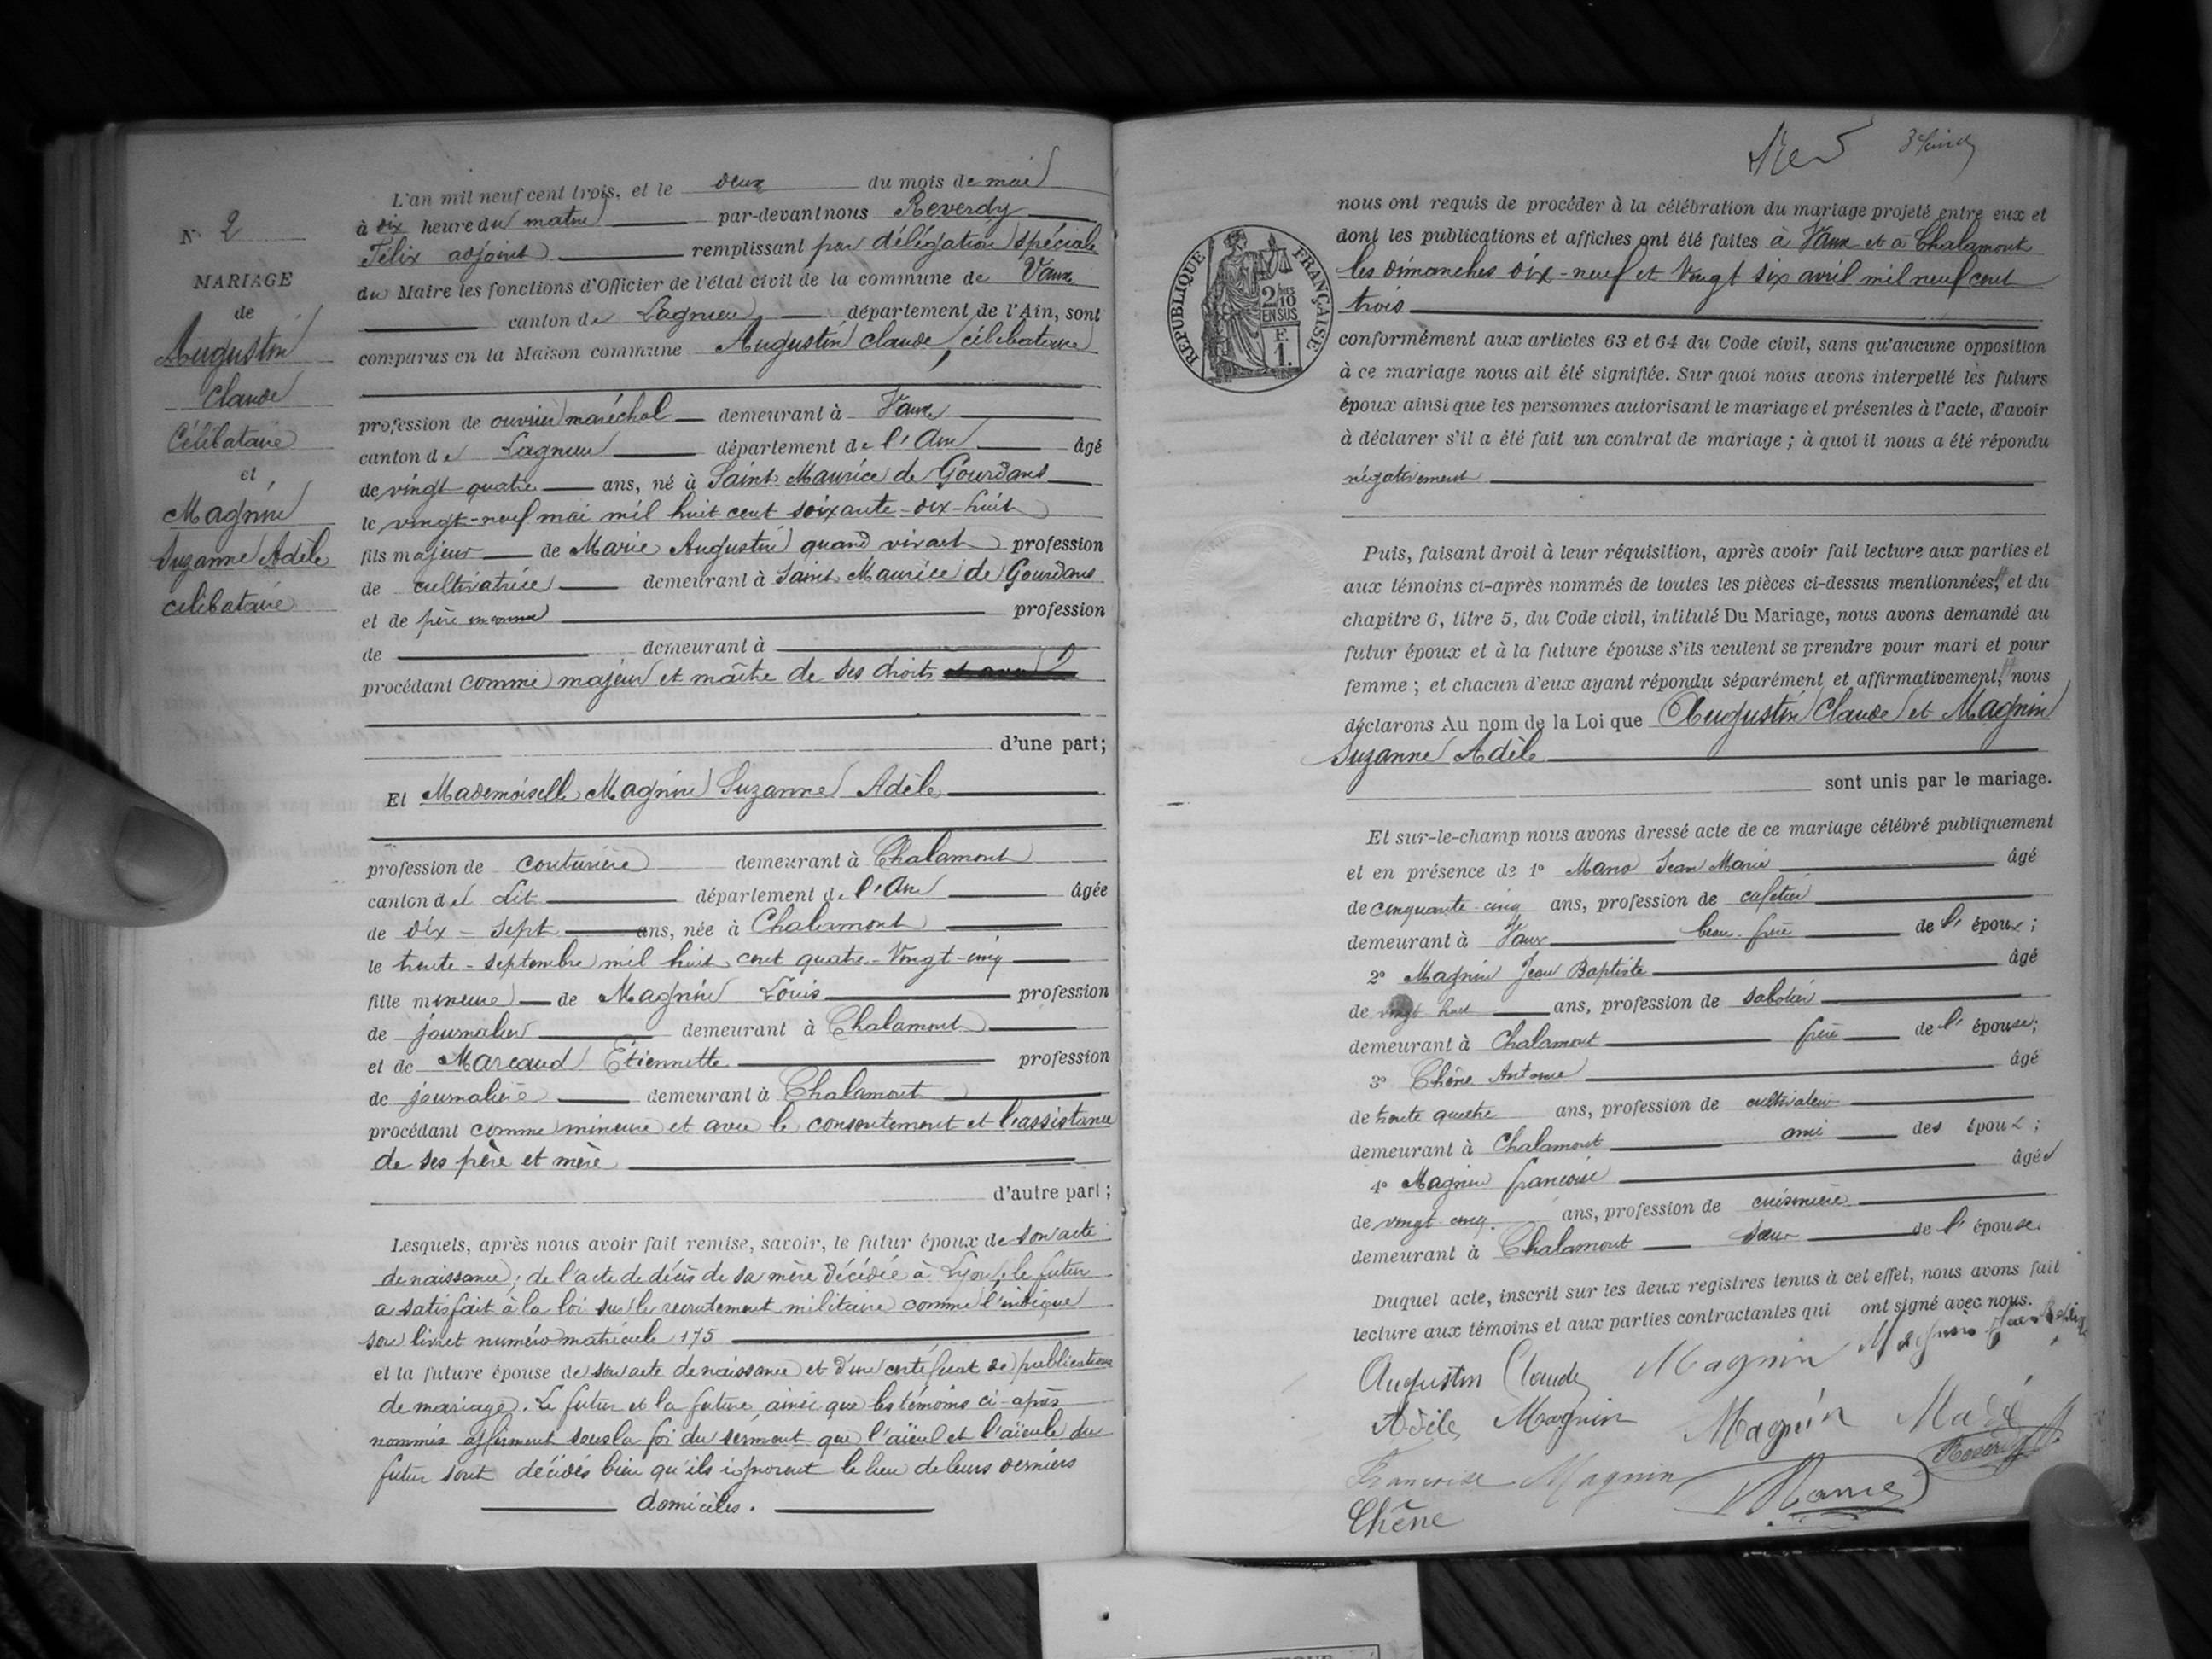 N° 2
MARIAGE
de
Augustin
Claude
Célibataire
et
Magnin
Suzanne Adèle
célibataire
L'an mil neuf cent trois, et le deux du mois de mai
à six heure du matin par-devant nous Reverdy
Félix adjoint remplissant par délégation spéciale
du Maire les fonctions d'Officier de l'état civil de la commune de Vaux
canton de Lagnieu département de l'Ain, sont
comparus en la Maison commune Augustin Claude, célibataire
profession de ouvrier maréchal demeurant à Vaux
canton de Lagnieu département de l'Ain âgé
de vingt-quatre ans, né à Saint Maurice de Gourdans
le vingt-neuf mai mil huit cent soixante-dix-huit
fils majeur de Marie Augustin quand vivait profession
de cultivatrice demeurant à Saint Maurice de Gourdans
et de père inconnu profession
de demeurant à
procédant comme majeur et maître de ses droits
d'une part;
Et Mademoiselle Magnin Suzanne Adèle
profession de couturière demeurant à Chalamont
canton del dit département de l'Ain âgée
de dix-sept ans, née à Chalamont
le trente-septembre mil huit cent quatre-vingt-cinq
fille mineure de Magnin Louis profession
de journalier demeurant à Chalamont
et de Marcaud Etiennette profession
de journalière demeurant à Chalamont
procédant comme mineure et avec le consentement et l'assistance
de ses père et mère
d'autre part;
Lesquels, après nous avoir fait remise, savoir, le futur époux de son acte
de naissance; de l'acte de décès de sa mère décédée à Lyon; le futur
a satisfait à la loi sur le recrutement militaire comme l'indique
son livret numéro matricule 175
et la future épouse de son acte de naissance et d'un certificat de publications
de mariage. Le futur et la future, ainsi que les témoins ci-après
nommés affirment sous la foi du serment que l'aïeul et l'aïeule du
futur sont décédés bien qu'ils ignorent le lieu de leurs derniers
domiciles.
nous ont requis de procéder à la célébration du mariage projeté entre eux et
dont les publications et affiches ont été faites à Vaux et à Chalamont
les dimanches dix-neuf et vingt six avril mil neuf cent
trois
RÉPUBLIQUE FRANÇAISE
2/10 EN SUS
F. 1.
conformément aux articles 63 et 64 du Code civil, sans qu'aucune opposition
à ce mariage nous ait été signifiée. Sur quoi nous avons interpellé les futurs
époux ainsi que les personnes autorisant le mariage et présentes à l'acte, d'avoir
à déclarer s'il a été fait un contrat de mariage; à quoi il nous a été répondu
négativement
Puis, faisant droit à leur réquisition, après avoir fait lecture aux parties et
aux témoins ci-après nommés de toutes les pièces ci-dessus mentionnées, et du
chapitre 6, titre 5, du Code civil, intitulé Du Mariage, nous avons demandé au
futur époux et à la future épouse s'ils veulent se prendre pour mari et pour
femme; et chacun d'eux ayant répondu séparément et affirmativement, nous
déclarons Au nom de la Loi que Augustin Claude et Magnin
Suzanne Adèle
sont unis par le mariage.
Et sur-le-champ nous avons dressé acte de ce mariage célébré publiquement
et en présence de 1° Jean Marie âgé
de cinquante-cinq ans, profession de cafetier
demeurant à Vaux beau-frère de l'époux;
2° Magnin Jean Baptiste âgé
de vingt huit ans, profession de sabotier
demeurant à Chalamont frère de l'épouse;
3° Chêne Antoine âgé
de trente quatre ans, profession de cultivateur
demeurant à Chalamont ami des époux;
4° Magnin françoise âgée
de vingt cinq. ans, profession de cuisinière
demeurant à Chalamont soeur de l'épouse.
Duquel acte, inscrit sur les deux registres tenus à cet effet, nous avons fait
lecture aux témoins et aux parties contractantes qui ont signé avec nous.
Augustin Claude Magnin Magnin
Adèle Magnin Magnin
Françoise Magnin Reverdy
Chêne